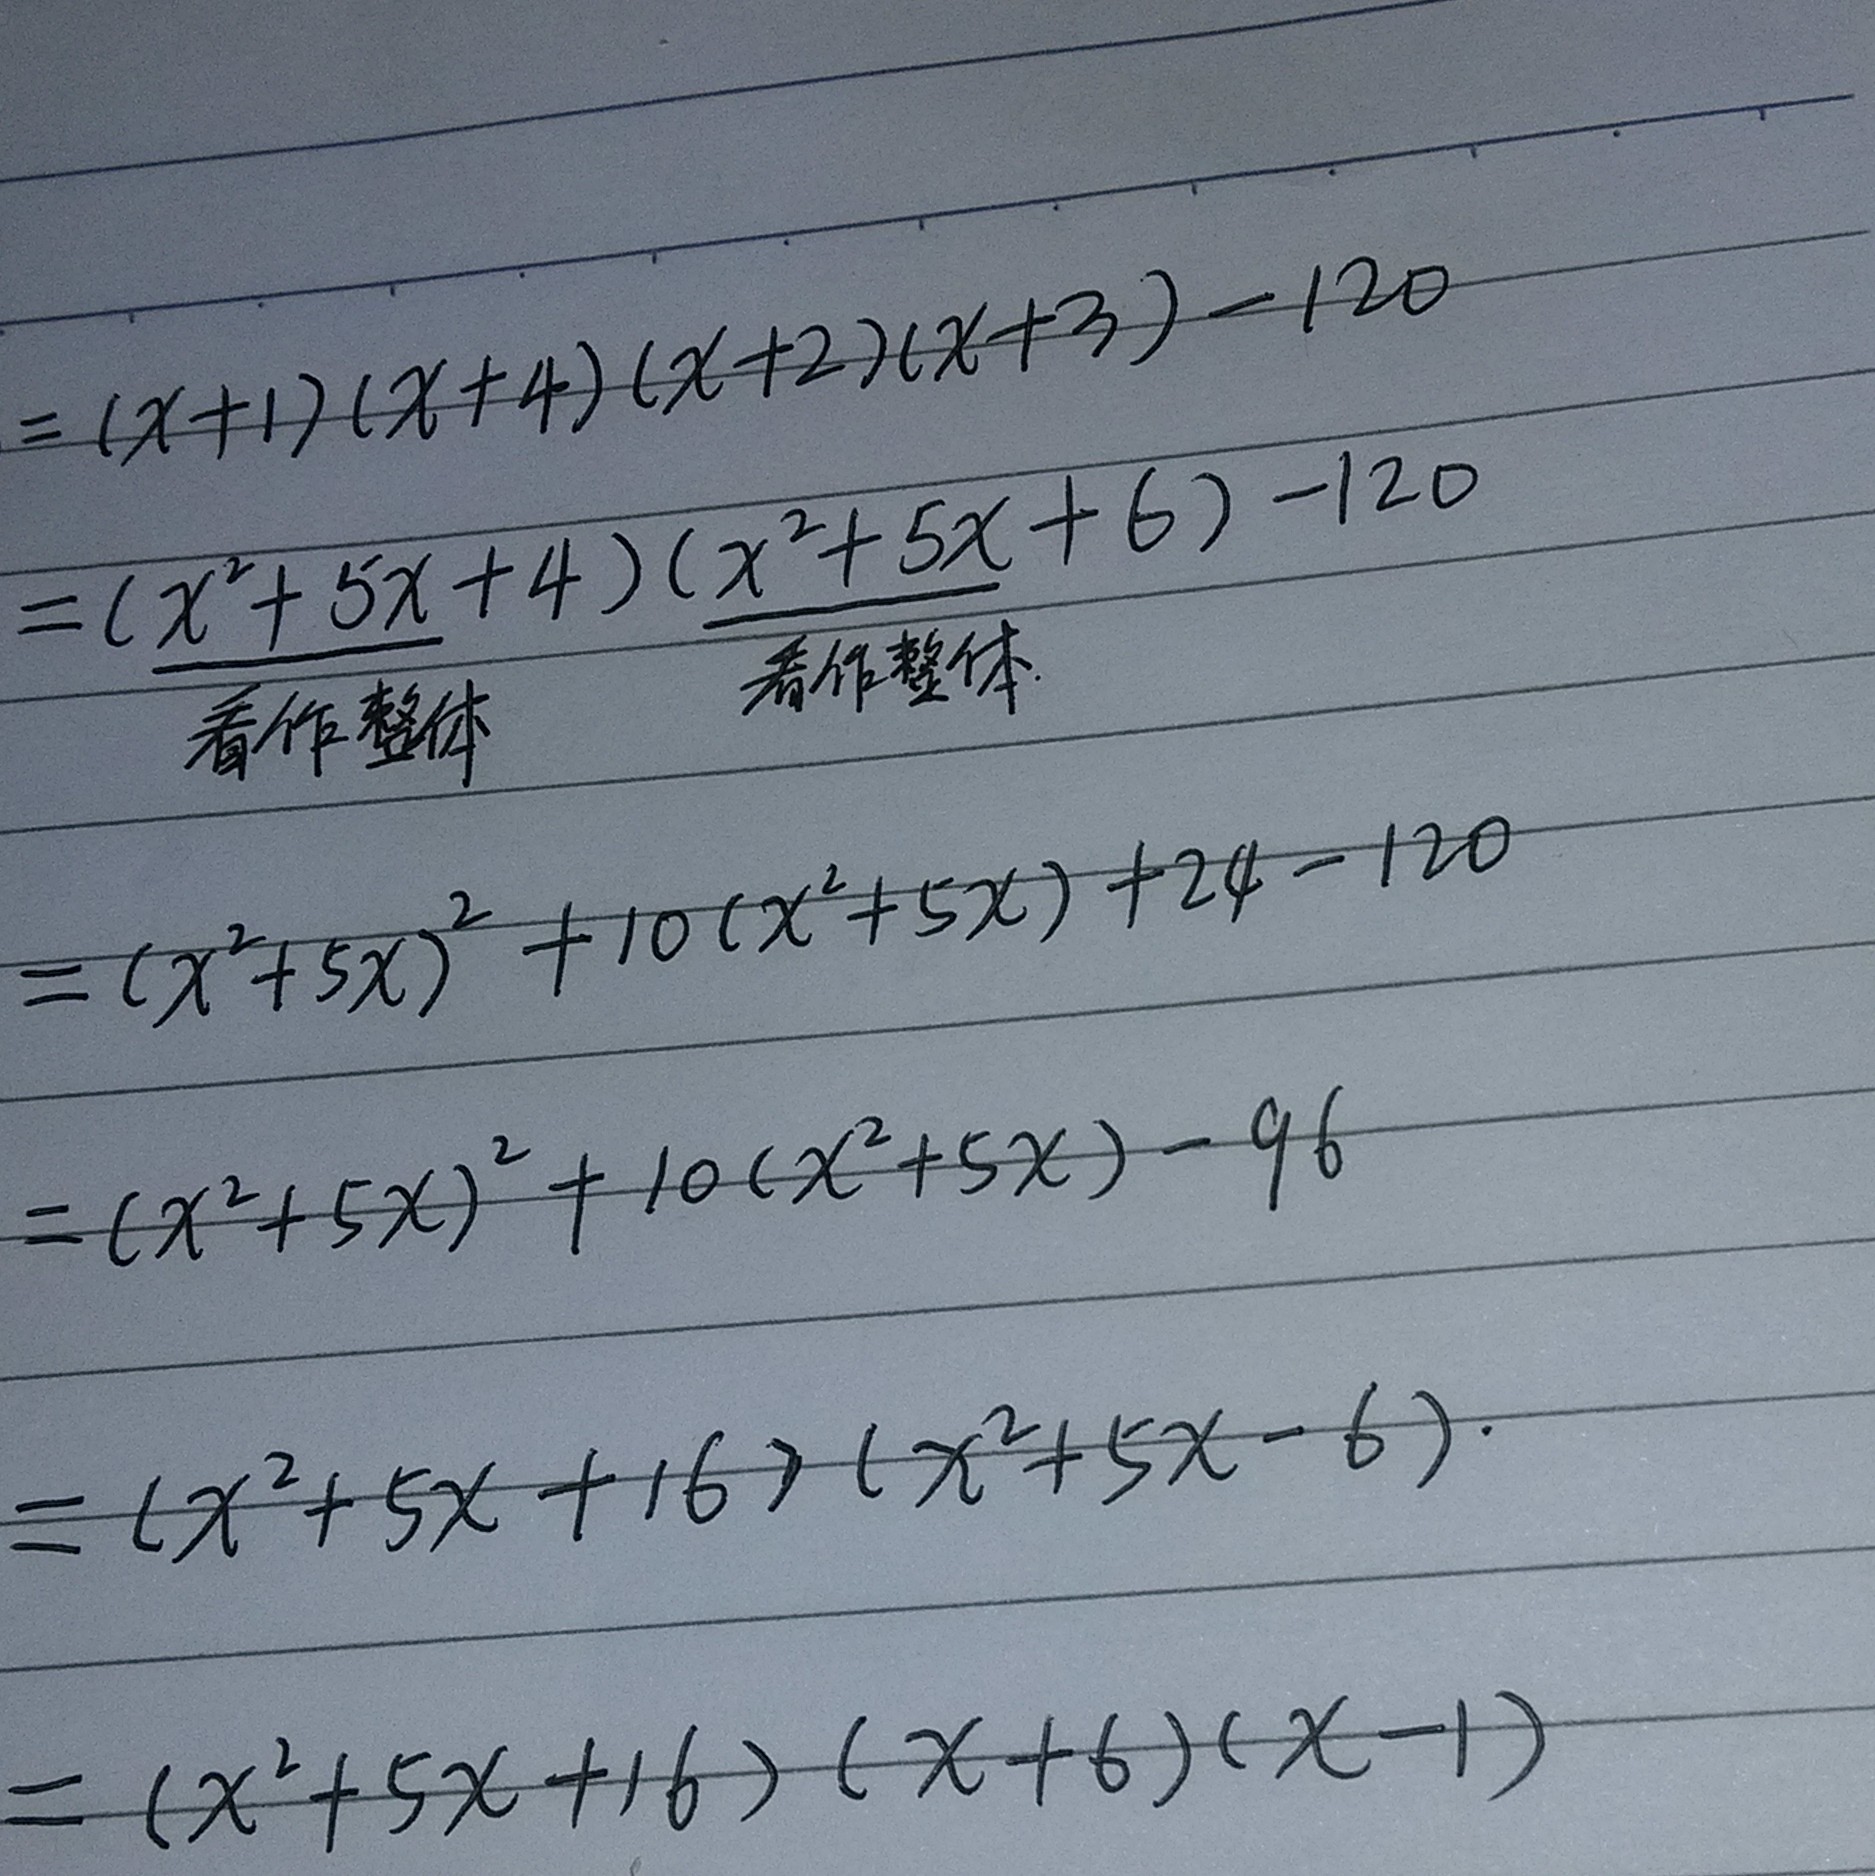 =(x+1)(x+4)(x+2)(x+3)-120
=(x²+5x+4)(x²+5x+6)-120
看作整体 看作整体.
=(x²+5x)²+10(x²+5x)+24-120
=(x²+5x)²+10(x²+5x)-96
=(x²+5x+16)(x²+5x-6).
=(x²+5x+16)(x+6)(x-1)